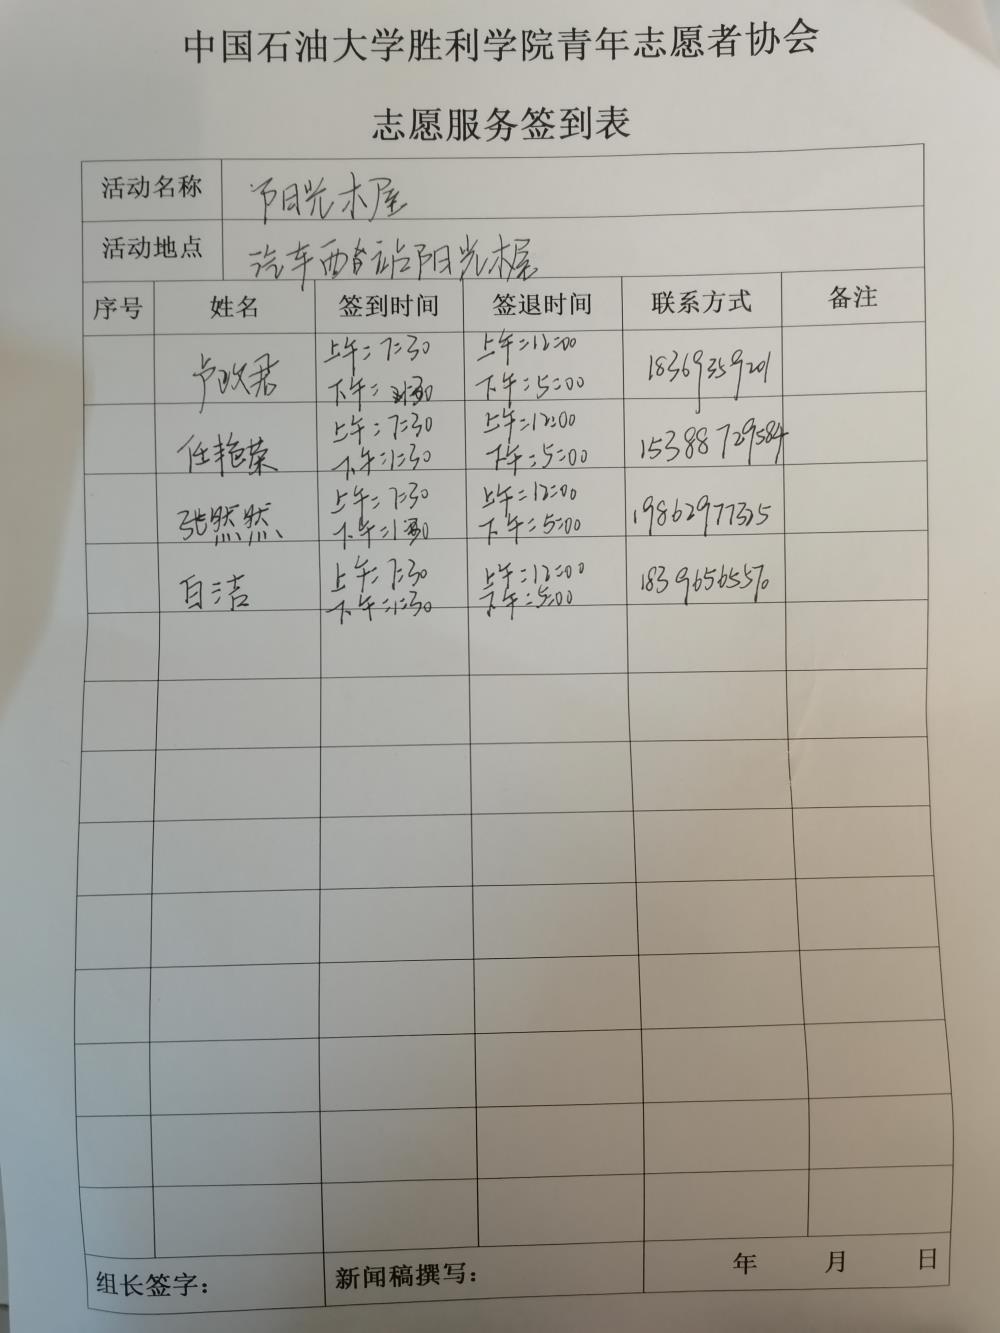 中国石油大学胜利学院青年志愿者协会
志愿服务签到表
活动名称 阳光木屋
活动地点 汽车西站阳光木屋
序号 姓名 签到时间 签退时间 联系方式 备注
上午:7:30 上午:12:00
卢政君 18369359201
下午: 下午:5:00
上午:7:30 上午:12:00
任艳荣 15388729584
下午:1:30 下午:5:00
上午:7:30 上午:12:00
张然然 19862977325
下午:1:30 下午:5:00
上午:7:30 上午:12:00
白洁 18396565570
下午:1:30 下午:5:00
组长签字: 新闻稿撰写: 年 月 日